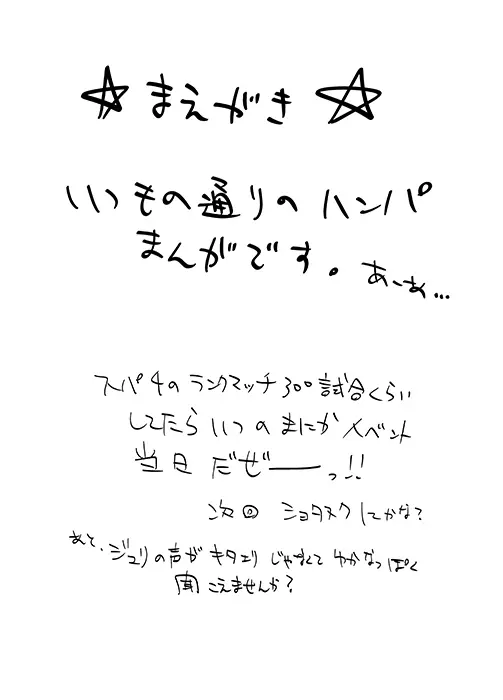 ☆まえがき☆
いつもの通りのハンパ
まんがです。あーあ…
スパ4のランクマッチ300試合くらい
してたらいつのまにかイベント
当日だぜーーっ!!
次回 ショタスクにかな?
あと、ジュリの声がキタエリじゃなくてわかなっぽく
聞こえませんか?